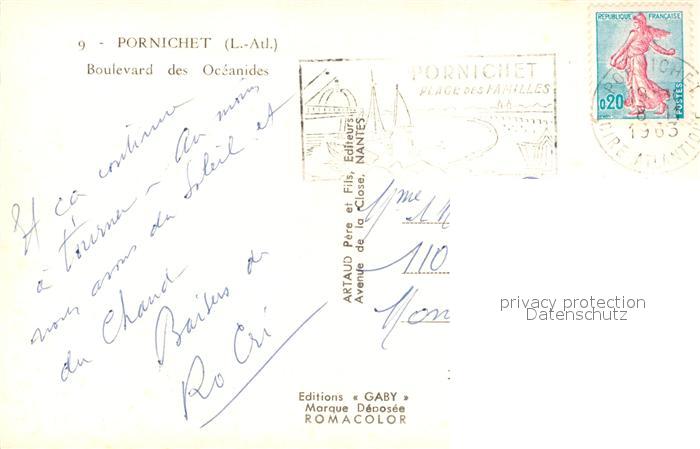 9 - PORNICHET (L.-Atl.)
Boulevard des Océanides
Et ça continue
à tourner - Au moins
nous avons du Soleil et
du Chaud
Baisers de
Ro Cri
ARTAUD Père et Fils, Editeurs.
Avenue de la Close, NANTES
Editions « GABY »
Marque Déposée
ROMACOLOR
PORNICHET
PLAGE DES FAMILLES
REPUBLIQUE FRANÇAISE
0,20
POSTES
PORNICHET
1963
LOIRE ATLANTIQUE
Mme
110
Mon
privacy protection
Datenschutz